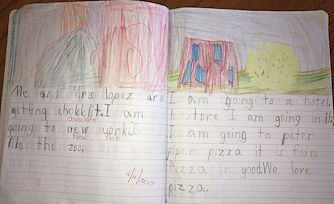 Me and Mrs lopez are
getting chokklit. I am
chocolate
going to new york. I
New York
like the zoo.
I am going to a hotel
store I am going in it
I am going to peter
piper pizza it is fun
Pizza is good. We love
pizza.